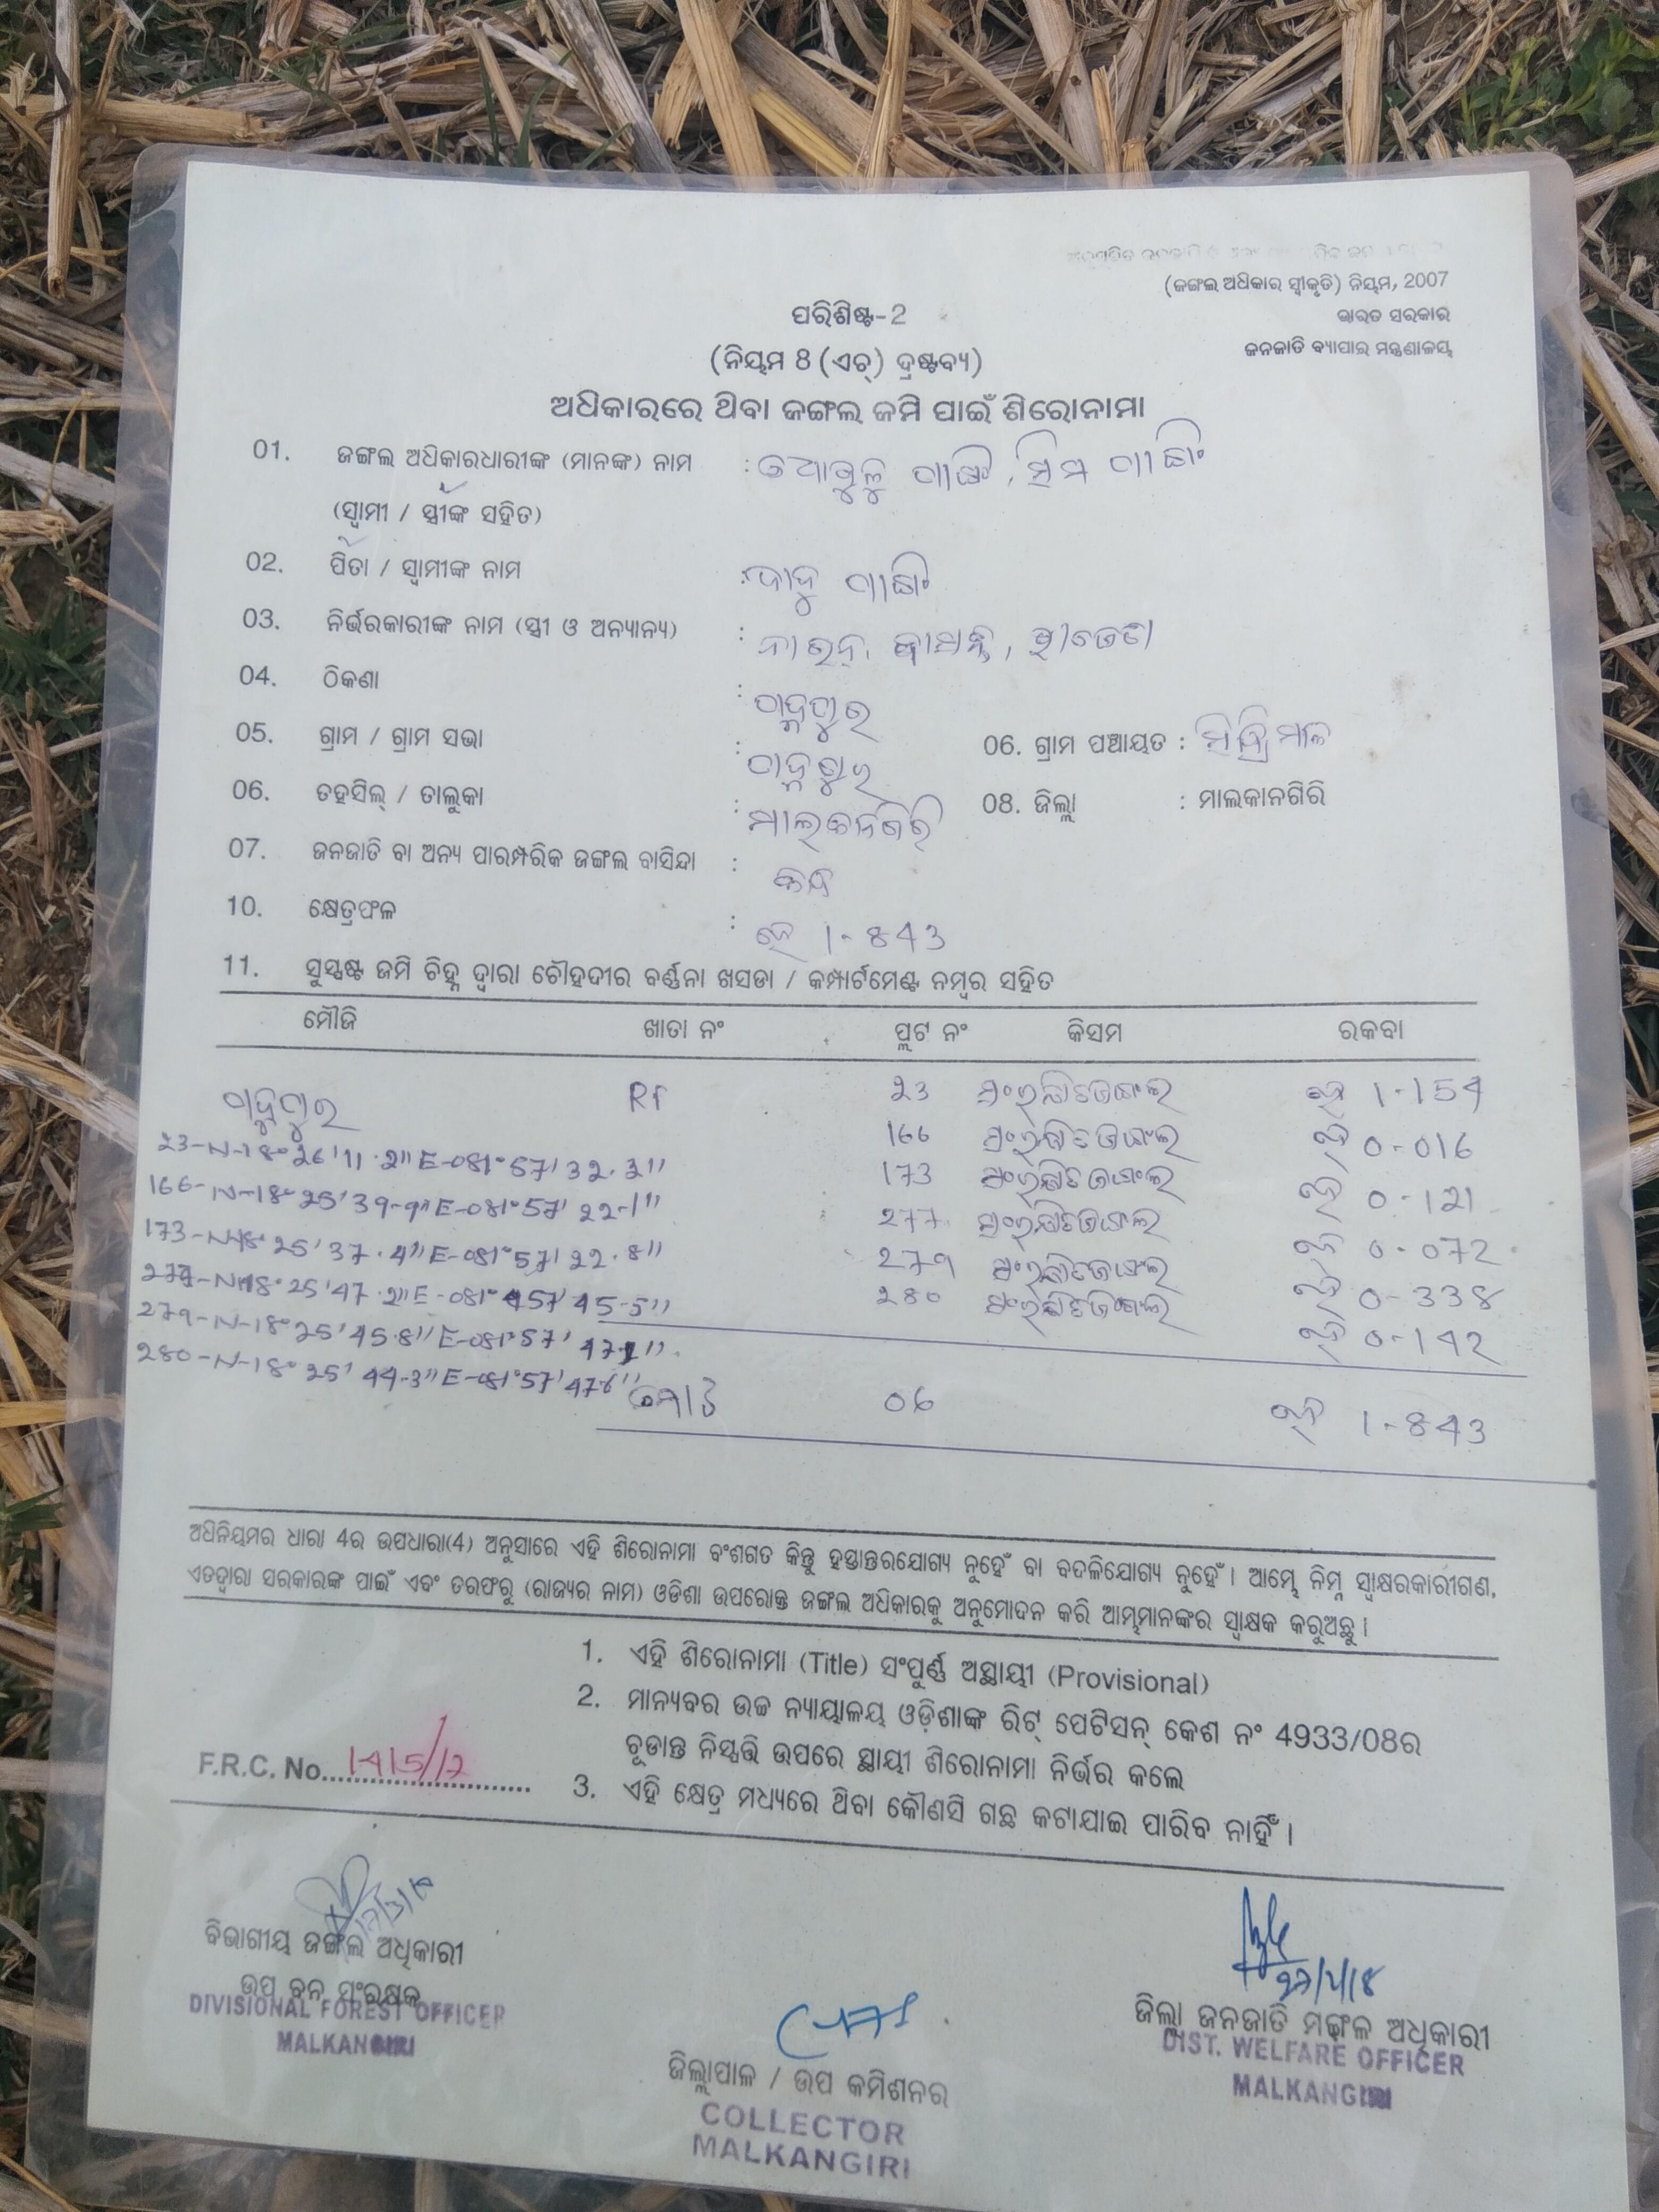 (ଜଙ୍ଗଲ ଅଧିକାର ସ୍ୱୀକୃତି) ନିୟମ, 2007
ଭାରତ ସରକାର
ଜନଜାତି ବ୍ୟାପାର ମନ୍ତ୍ରଣାଳୟ
ପରିଶିଷ୍ଟ-2
(ନିୟମ 8 (ଏଚ୍) ଦ୍ରଷ୍ଟବ୍ୟ)
ଅଧିକାରରେ ଥିବା ଜଙ୍ଗଲ ଜମି ପାଇଁ ଶିରୋନାମା
01. ଜଙ୍ଗଲ ଅଧିକାରଧାରୀଙ୍କ (ମାନଙ୍କ) ନାମ :
(ସ୍ୱାମୀ / ସ୍ତ୍ରୀଙ୍କ ସହିତ)
02. ପିତା / ସ୍ୱାମୀଙ୍କ ନାମ :
03. ନିର୍ଭରକାରୀଙ୍କ ନାମ (ସ୍ତ୍ରୀ ଓ ଅନ୍ୟାନ୍ୟ) :
04. ଠିକଣା :
05. ଗ୍ରାମ / ଗ୍ରାମ ସଭା : 06. ଗ୍ରାମ ପଞ୍ଚାୟତ :
06. ତହସିଲ୍ / ତାଲୁକା : ମାଲ୍‌କାନଗିରି 08. ଜିଲ୍ଲା : ମାଲକାନଗିରି
07. ଜନଜାତି ବା ଅନ୍ୟ ପାରମ୍ପରିକ ଜଙ୍ଗଲ ବାସିନ୍ଦା :
10. କ୍ଷେତ୍ରଫଳ : ହେ 1-843
11. ସୁସ୍ପଷ୍ଟ ଜମି ଚିହ୍ନ ଦ୍ୱାରା ଚୌହଦୀର ବର୍ଣ୍ଣନା ଖସଡା / କମ୍ପାର୍ଟମେଣ୍ଟ ନମ୍ବର ସହିତ
ମୌଜି ଖାତା ନଂ ପ୍ଲଟ ନଂ କିସମ ରକବା
Rf 23 ସଂରକ୍ଷିତ ଜଙ୍ଗଲ ହେ 1-154
166 ସଂରକ୍ଷିତ ଜଙ୍ଗଲ ହେ 0-016
173 ସଂରକ୍ଷିତ ଜଙ୍ଗଲ ହେ 0-121
277 ସଂରକ୍ଷିତ ଜଙ୍ଗଲ ହେ 0-072
279 ସଂରକ୍ଷିତ ଜଙ୍ଗଲ ହେ 0-338
280 ସଂରକ୍ଷିତ ଜଙ୍ଗଲ ହେ 0-142
23-N-18°26'11.2" E-081°57'32.3"
166-N-18°25'39.9" E-081°57'22.1"
173-N-18°25'37.4" E-081°57'22.8"
277-N-18°25'47.2" E-081°57'45.5"
279-N-18°25'45.8" E-081°57'
280-N-18°25'44.3" E-081°57'47.6"
ମୋଟ 06 ହେ 1-843
ଅଧିନିୟମର ଧାରା 4ର ଉପଧାରା(4) ଅନୁସାରେ ଏହି ଶିରୋନାମା ବଂଶଗତ କିନ୍ତୁ ହସ୍ତାନ୍ତରଯୋଗ୍ୟ ନୁହେଁ ବା ବଦଳିଯୋଗ୍ୟ ନୁହେଁ । ଆମ୍ଭେ ନିମ୍ନ ସ୍ୱାକ୍ଷରକାରୀଗଣ,
ଏତଦ୍ୱାରା ସରକାରଙ୍କ ପାଇଁ ଏବଂ ତରଫରୁ (ରାଜ୍ୟର ନାମ) ଓଡିଶା ଉପରୋକ୍ତ ଜଙ୍ଗଲ ଅଧିକାରକୁ ଅନୁମୋଦନ କରି ଆମ୍ଭମାନଙ୍କର ସ୍ୱାକ୍ଷକ କରୁଅଛୁ ।
1. ଏହି ଶିରୋନାମା (Title) ସଂପୁର୍ଣ୍ଣ ଅସ୍ଥାୟୀ (Provisional)
2. ମାନ୍ୟବର ଉଚ୍ଚ ନ୍ୟାୟାଳୟ ଓଡ଼ିଶାଙ୍କ ରିଟ୍ ପେଟିସନ୍ କେଶ ନଂ 4933/08ର
ଚୂଡାନ୍ତ ନିସ୍ପତ୍ତି ଉପରେ ସ୍ଥାୟୀ ଶିରୋନାମା ନିର୍ଭର କଲେ
F.R.C. No. 1415/12
3. ଏହି କ୍ଷେତ୍ର ମଧ୍ୟରେ ଥିବା କୌଣସି ଗଛ କଟାଯାଇ ପାରିବ ନାହିଁ ।
ବିଭାଗୀୟ ଜଙ୍ଗଲ ଅଧିକାରୀ
ଉପ ବନ ସଂରକ୍ଷକ
DIVISIONAL FOREST OFFICER
MALKANGIRI
ଜିଲ୍ଲାପାଳ / ଉପ କମିଶନର
COLLECTOR
MALKANGIRI
ଜିଲ୍ଲା ଜନଜାତି ମଙ୍ଗଳ ଅଧିକାରୀ
DIST. WELFARE OFFICER
MALKANGIRI